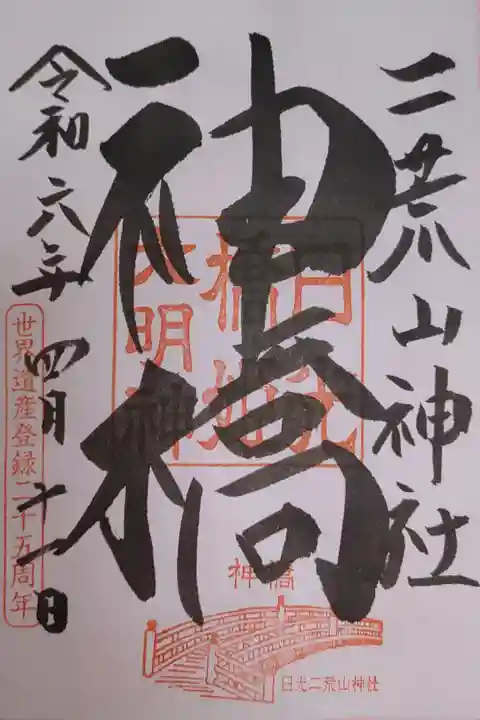 二荒山神社
神橋
令和六年四月十一日
日光
橋姫
大明神
世界遺産登録二十五周年
神橋
日光二荒山神社